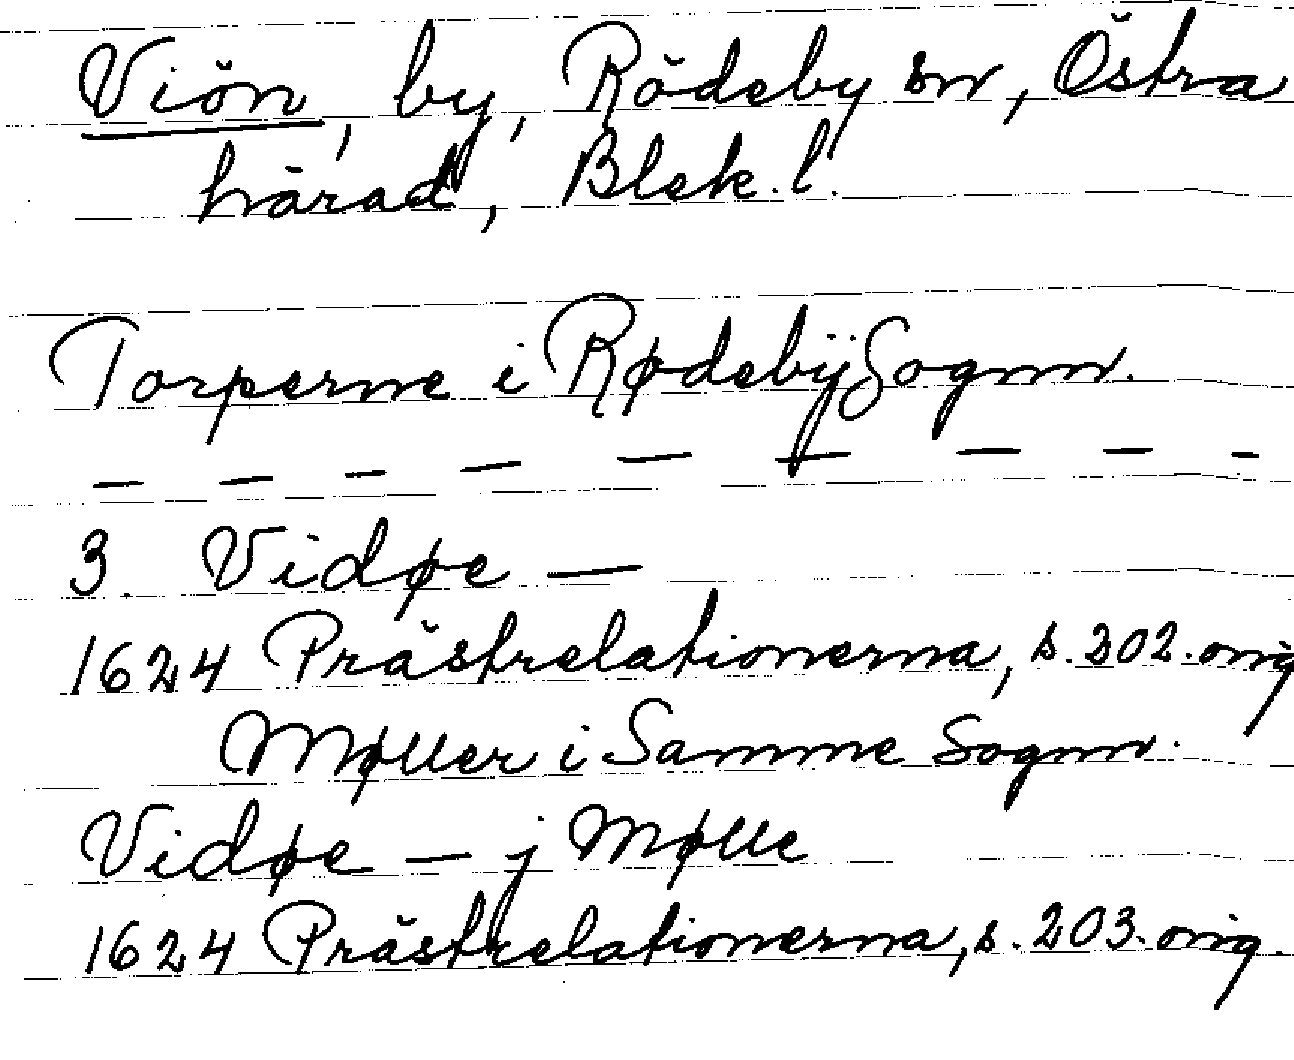 Viön, by, Rödeby sn, Östra
härad, Blek. l.
Torperne i Rødebÿ Sognn.
— — — — — — — — —
3. Vidøe —
1624 Prästrelationerna, s. 202. orig
Møller i Samme Sognn.
Vidøe — j Mølle
1624 Prästrelationerna, s. 203. orig.